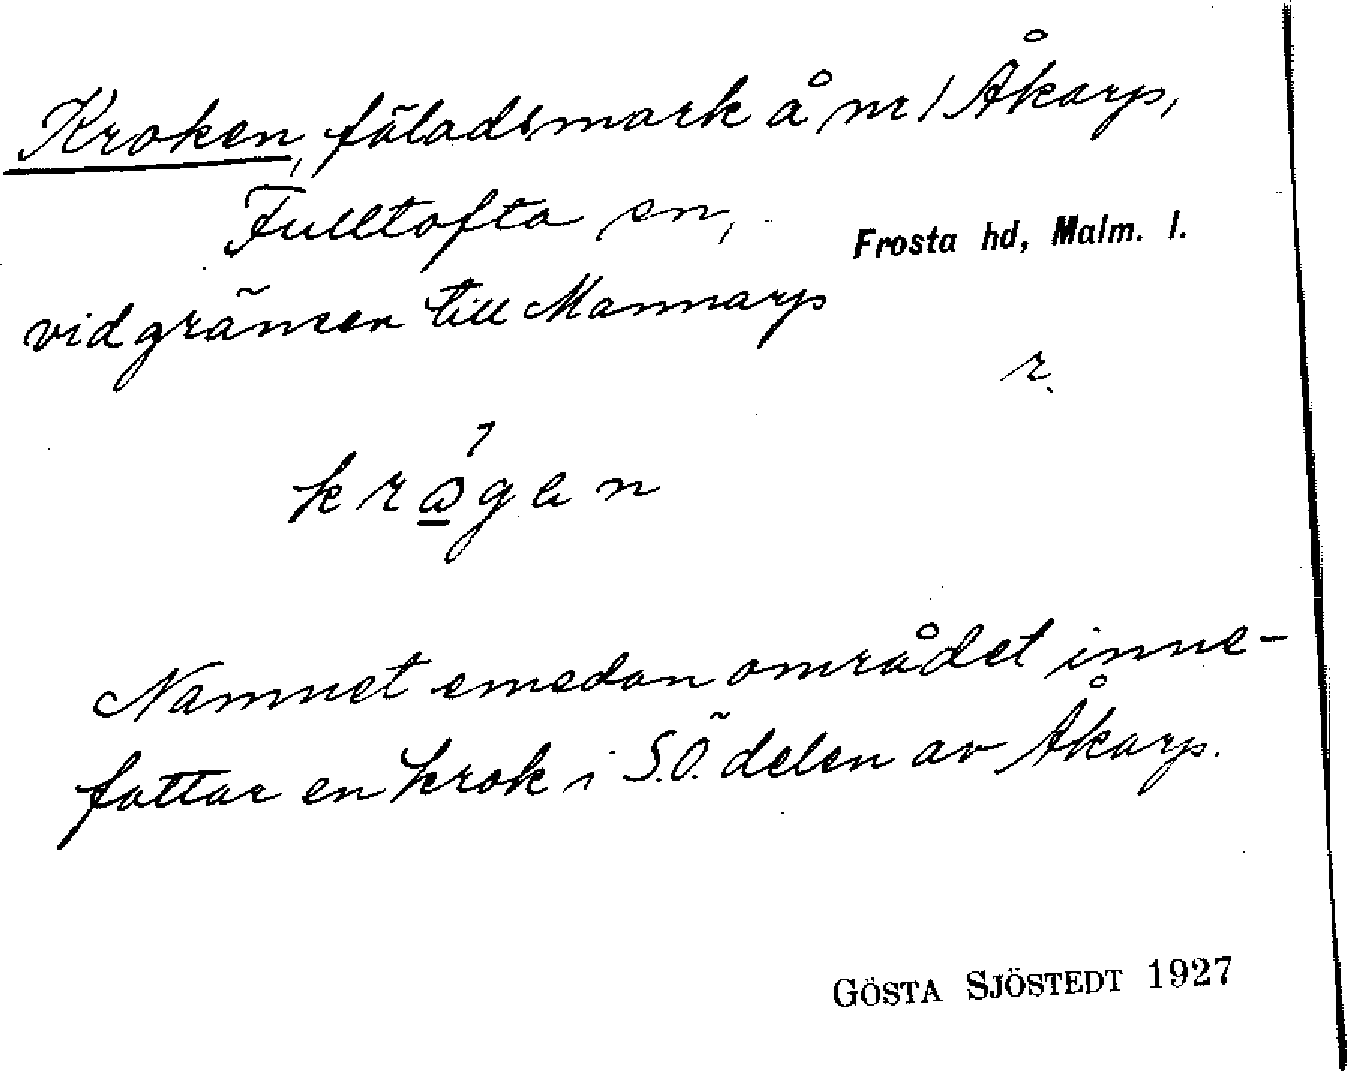 Kroken, fäladsmark å nr 1 Åkarp,
Fulltofta sn, Frosta hd, Malm. l.
vid gränsen till Mannarp
r.
krågen
Namnet emedan området inne-
fattar en krok i S.Ö. delen av Åkarp.
GÖSTA SJÖSTEDT 1927